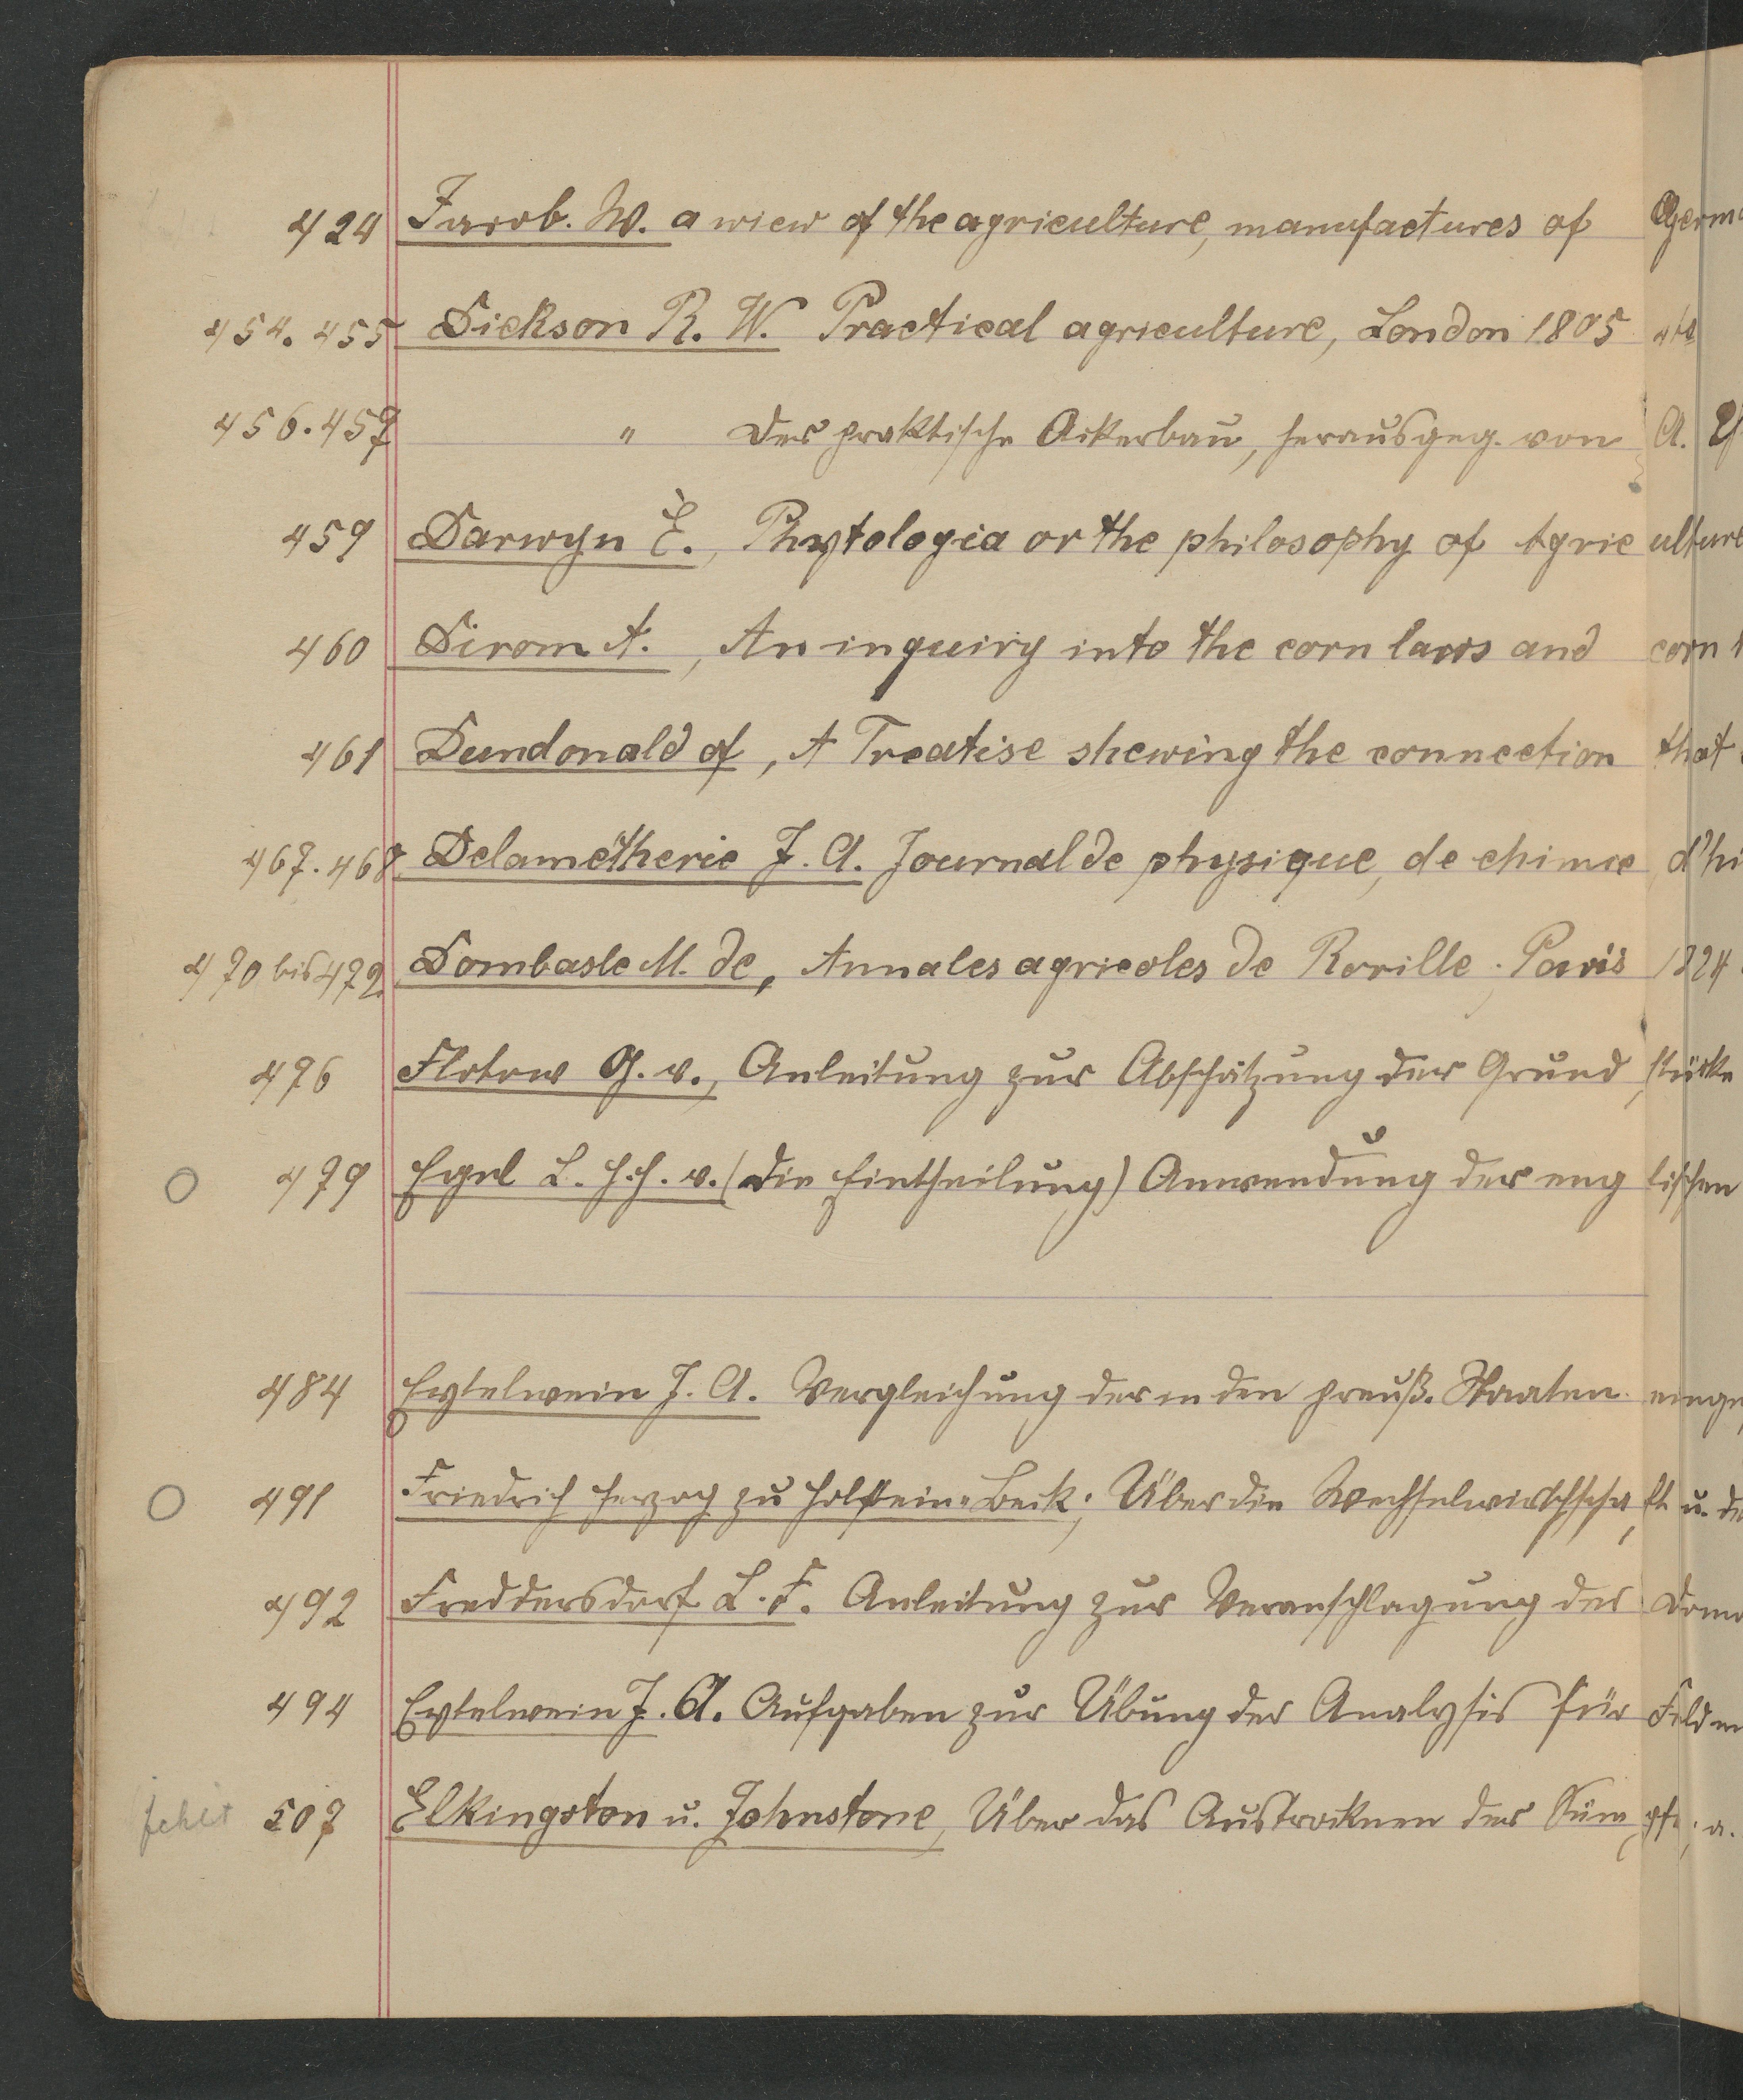 424 Jacob. W. a wiew of the agriculture, manufactures of Germa
454. 455 Dickson R. W. Practical agriculture, London 1805 4to
456. 457 " Der praktische Ackerbau, herausgeg. von A.
459 Darwyn E., Phytologia or the philosophy of Agric ulture
460 Dirom A., An inquiry into the corn laws and corn t
461 Dundonald of, A Treatise shewing the connection that
467. 468 Delamètherie J. A. Journal de physique, de chimie d'hi
470 bis 472. Dombasle M. de, Annales agricoles de Roville. Paris 1824.
476 Flotow G. v., Anleitung zur Abschätzung der Grund stücke
479 Egel L. H. H. v. (die Eintheilung) Anwendung der eng lischen
484 Eytelwein J. A. Vergleichung der in den preuß. Staaten einge
491 Friedrich Herzog zu Holstein-Beck; Über die Wechselwirthscha ft u. de
492 Freddersdorf L. F. Anleitung zur Veranschlagung der Doma
494 Eytelwein J. A. Aufgaben zur Übung der Analysis für Feldm
fehlt 507 Elkingston u. Johnstone, Über das Austrocknen der Süm pfe; a.